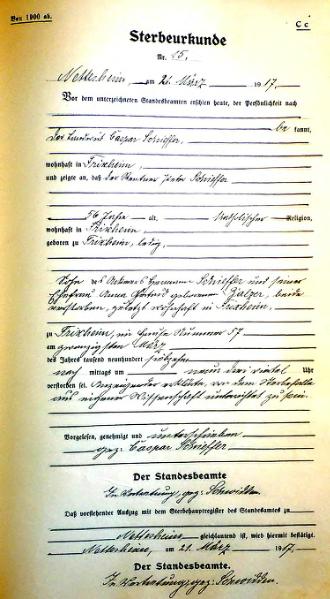 Von 1900 ab.
C c
Sterbeurkunde
Nr. 15.
Nettersheim, am 21. März 1917.
Vor dem unterzeichneten Standesbeamten erschien heute, der Persönlichkeit nach
be kannt,
Der Landwirt Caspar Schieffer,
wohnhaft in Frixheim,
und zeigte an, daß der Rentner Peter Schieffer
56 Jahre alt, Katholischer Religion,
wohnhaft in Frixheim
geboren zu Frixheim, ledig,
Sohn des Ackerers Hermann Schieffer und seiner
Ehefrau Anna Gertrud geborenen beide
verstorben, zuletzt wohnhaft in Frixheim,
zu Frixheim, im Hause Nummer 57
am zwanzigsten März
des Jahres tausend neunhundert siebzehn
nach mittags um neun drei viertel Uhr
verstorben sei. Anzeigender erklärte, von dem Sterbefalle
aus eigener Wissenschaft unterrichtet zu sein.
Vorgelesen, genehmigt und unterschrieben
gez: Caspar Schieffer.
Der Standesbeamte
In Vertretung, gez:
Daß vorstehender Auszug mit dem Sterbehauptregister des Standesamts zu
Nettersheim gleichlautend ist, wird hiermit bestätigt.
Nettersheim, am 21. März 1917.
Der Standesbeamte.
In Vertretung, gez: